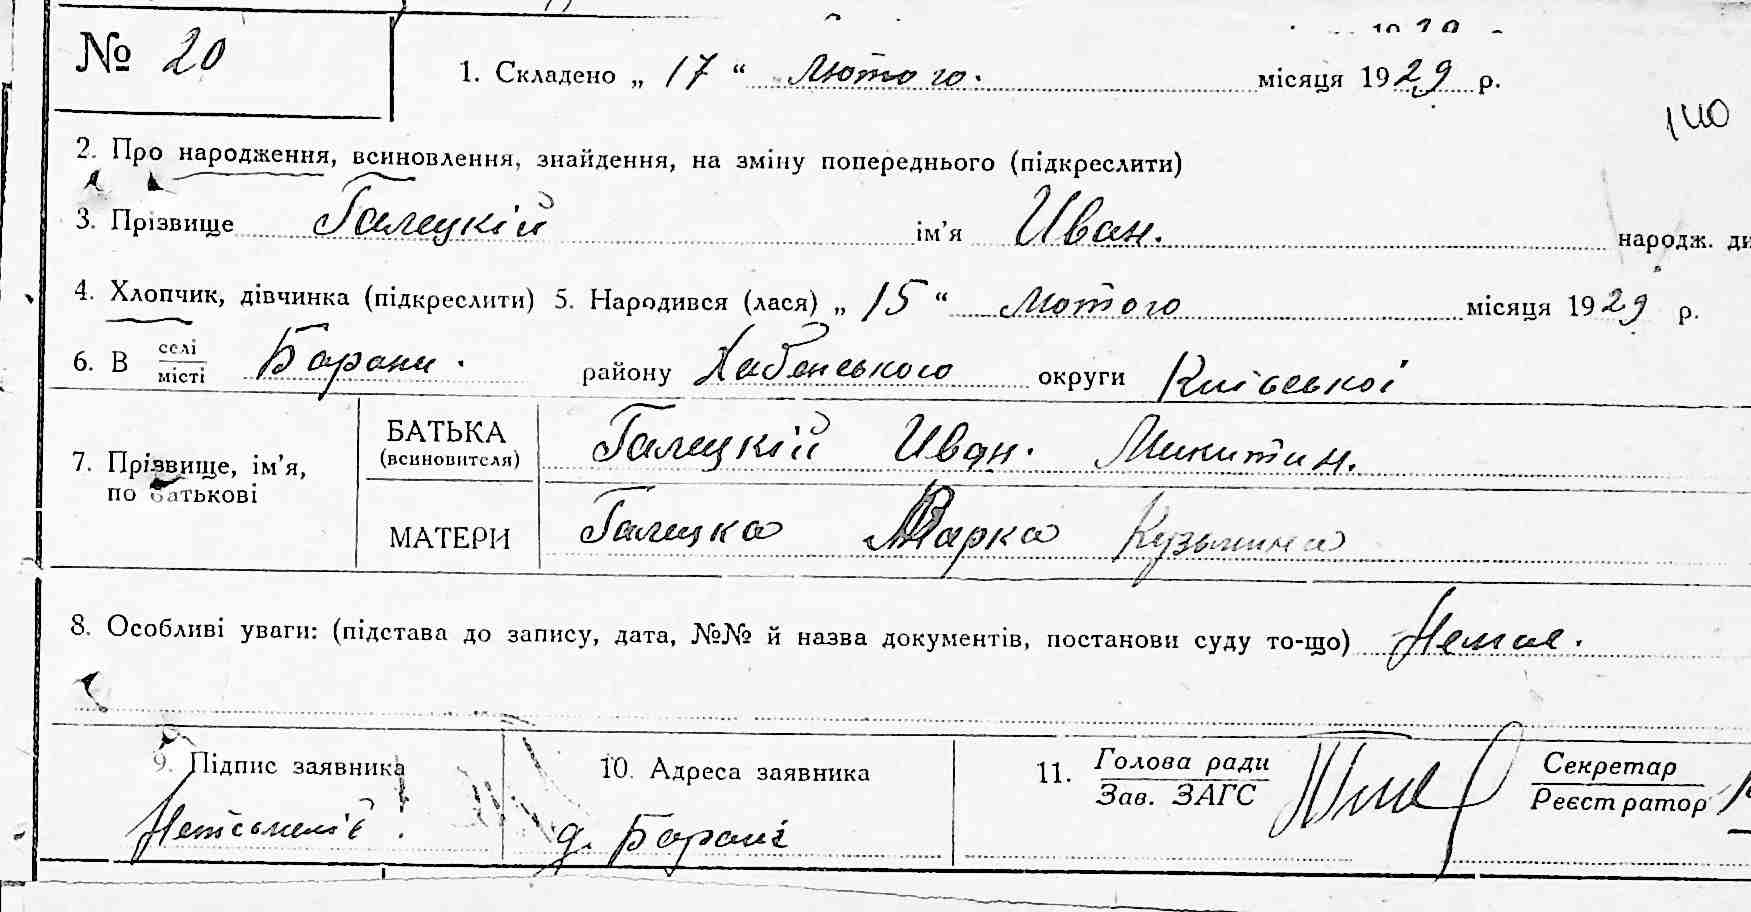 № 20
1. Складено „ 17 “ Лютого. місяця 1929 р.
140
2. Про народження, всиновлення, знайдення, на зміну попереднього (підкреслити)
3. Прізвище Галецкій ім’я Иван. народж. ди
4. Хлопчик, дівчинка (підкреслити) 5. Народився (лася) „ 15 “ Лютого місяця 1929 р.
6. В селі місті Борани. району Хабенського округи Київської
7. Прізвище, ім’я, по батькові
БАТЬКА (всиновителя) Галецкій Иван. Микитин.
МАТЕРИ Галецка Варка Кузьмина
8. Особливі уваги: (підстава до запису, дата, №№ й назва документів, постанови суду то-що) Немає.
9. Підпис заявника
10. Адреса заявника
д. Борані
11. Голова ради
Зав. ЗАГС
Секретар
Реєстратор